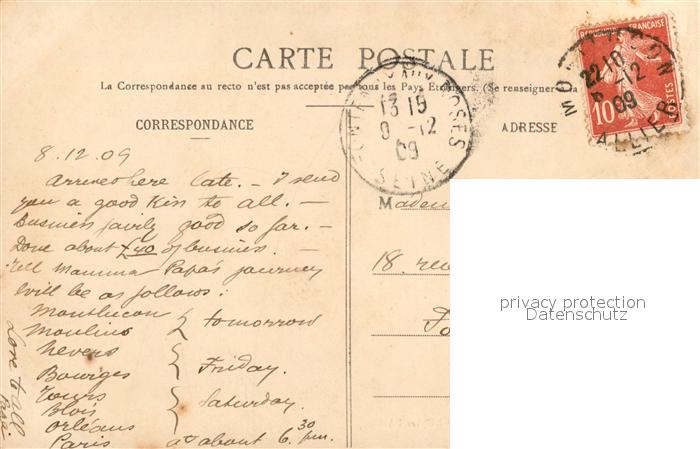 CARTE POSTALE
La Correspondance au recto n'est pas acceptée par tous les Pays Étrangers. (Se renseigner à la
CORRESPONDANCE
ADRESSE
MONTLUCON
22 10
8 -12
09
ALLIER
RÉPUBLIQUE FRANÇAISE
10
POSTES
FONTENAY AUX ROSES
13 15
9 -12
09
SEINE
8.12.09
Arrived here late. - I send
you a good kiss to all. -
Business fairly good so far. -
Done about £40 of business. -
Tell Mamma Papa's journey
will be as follows:
Montlucon
Moulins } tomorrow
Nevers
Bourges } Friday.
Tours
Blois } Saturday.
Orléans
Paris at about 6.30 pm.
Love to all
Papa.
Madem
18. rue
privacy protection
Datenschutz